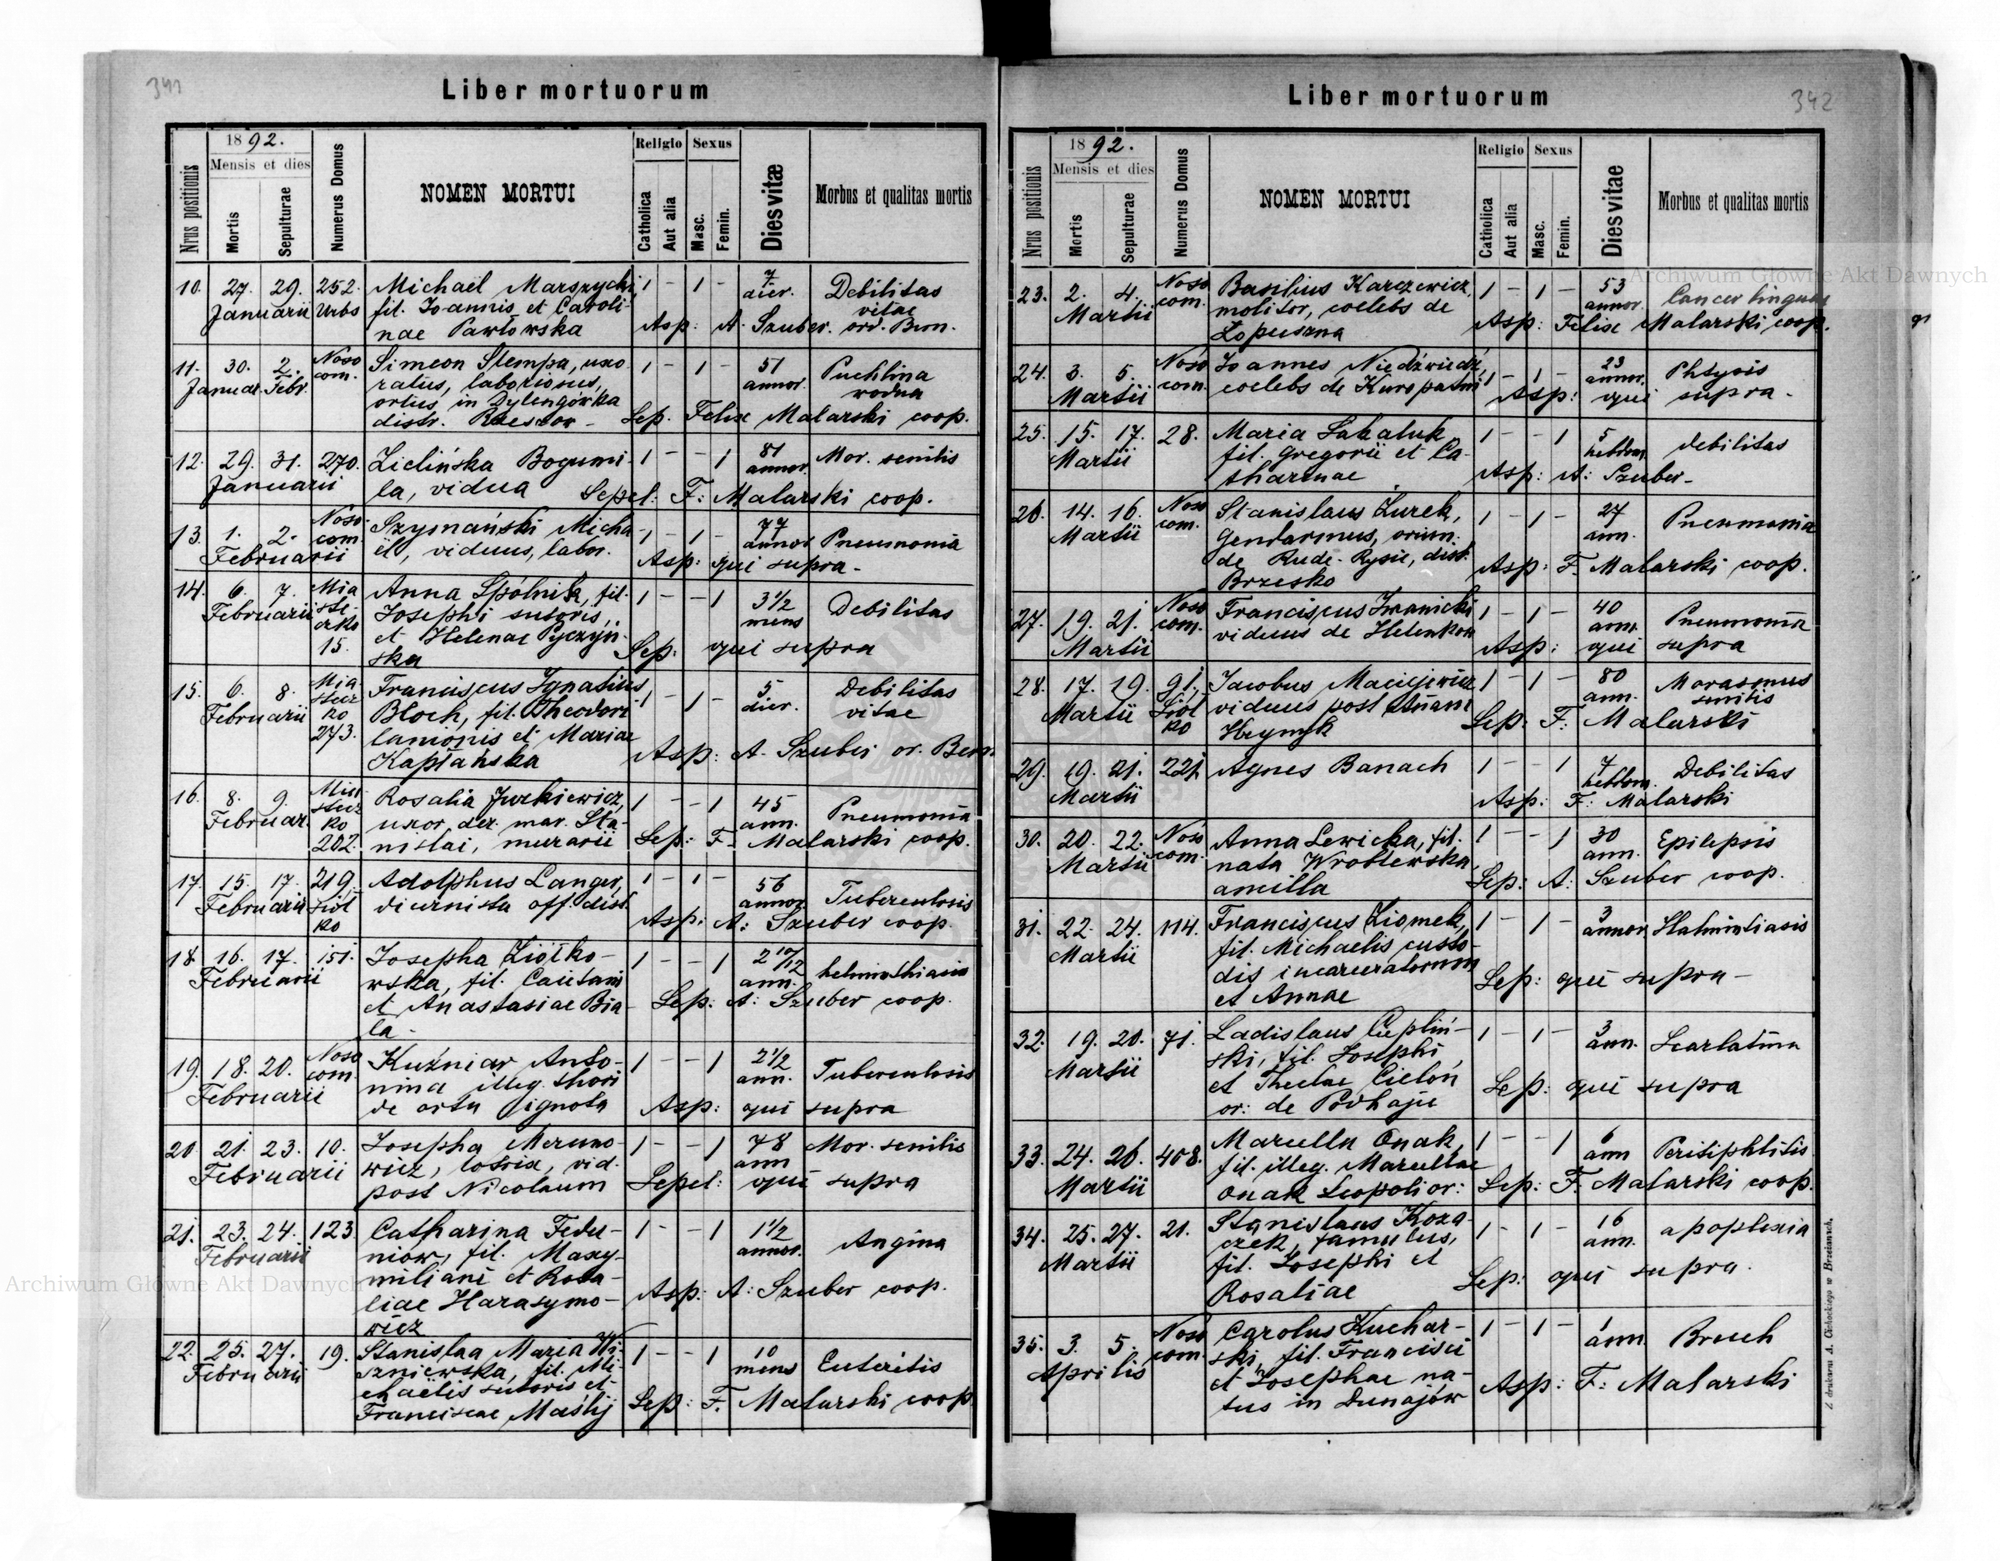 341
Liber mortuorum
Nrus positionis
1892.
Mensis et dies
Mortis
Sepulturae
Numerus Domus
NOMEN MORTUI
Religio
Catholica
Aut alia
Sexus
Masc.
Femin.
Dies vitæ
Morbus et qualitas mortis
10. 27. 29. 252. Michaël Marszycki, 1 - 1 - 7 Debilitas
Januarii Urbs fil. Joannis et Caroli- dier. vitae
nae Pawłowska Asp: A. Szuber. ord. Bern.
11. 30. 2. Noso Simeon Stempa, uxo 1 - 1 - 51 Puchlina
Januar. Febr. com. ratus, laboriosus, annor. wodna
ortus in Dylengówka
distr. Sep. Felix Malarski coop.
12. 29. 31. 270. Zielińska Bogumi- 1 - - 1 81 Mor. senilis
Januarii la, vidua annor
Sepel: F: Malarski coop.
13. 1. 2. Noso Szymański Micha 1 - 1 - 77 Pneumonia
Februarii com. ël, viduus, labor. annor
Asp: qui supra-
14. 6. 7. Mia Anna Spólnik, fil. 1 - - 1 3 1/2 Debilitas
Februarii ste Josephi sutoris, mens
czko et Helenae Pyczyń-
15. ska Sep: qui supra
15. 6. 8. Mia Franciscus Ignatius 1 - 1 - 5. Debilitas
Februarii stecz Bloch, fil. Theodori dier. vitae
ko lanionis et Mariae
273. Kaptańska Asp: A. Szuber or. Bern
16. 8. 9. Mia Rosalia Jurkiewicz, 1 - - 1 45 Pneumonia
Februar. stecz uxor der. mar. Sta- ann.
ko nislai, murarii Sep: F. Malarski coop.
202.
17. 15. 17. 219. Adolphus Langer, 1 - 1 - 56 Tuberculosis
Februarii Siół diurnista off. dist. annor
ko Asp: A: Szuber coop.
18. 16. 17. 151. Josepha Ziółko- 1 - - 1 2 10/12 helminthiasis
Februarii wska, fil. Cajetani ann.
et Anastasiae Bia Sep: A: Szuber coop.
la-
19. 18. 20. Noso Kuźniar Anto- 1 - - 1 2 1/2 Tuberculosis
Februarii com. nina illeg. thori ann.
de ortu ignota Asp: qui supra
20. 21. 23. 10. Josepha Meruno- 1 - - 1 78 Mor. senilis
Februarii wicz, lotrix, vid. ann
post Nicolaum Sepel: qui supra
21. 23. 24. 123 Catharina Fedu- 1 - - 1 1 1/2 Angina
Februarii niów, fil. Maxy- annor.
miliani et Rosa-
liae Harasymo- Asp: A: Szuber coop.
wicz
22. 25. 27. 19. Stanislaa Maria Wi- 1 - - 1 10 Enteritis
Februarii szniewska, fil. Mi- mens
chaëlis sutoris et
Franciscae Maślij Sep: F. Malarski coop.
342
Liber mortuorum
Nrus positionis
1892.
Mensis et dies
Mortis
Sepulturae
Numerus Domus
NOMEN MORTUI
Religio
Catholica
Aut alia
Sexus
Masc.
Femin.
Dies vitae
Morbus et qualitas mortis
23. 2. 4. Noso Basilius Karczewicz, 1 - 1 - 53 Cancer linguae
Martii com. molitor, coelebs de annor.
Łopuszna Asp: Felix Malarski, coop.
24. 3. 5. Noso Joannes Niedźwiedź, 1 - 1 - 23 Phtysis
Martii com. coelebs de Kuropatni annor.
Asp: qui supra-
25. 15. 17. 28. Maria Sakaluk 1 - - 1 5 debilitas
Martii fil. Gregorii et Ca- hebdom.
tharinae Asp: A: Szuber-
26. 14. 16. Noso Stanislaus Żurek, 1 - 1 - 27 Pneumonia
Martii com. Gendarmus, oriun. ann.
de Rude-Rysie, distr.
Brzesko Asp: F. Malarski coop.
27. 19. 21. Noso Franciscus Iwanicki 1 - 1 - 40 Pneumonia
Martii com. viduus de Helenkow ann.
Asp: qui supra
28. 17. 19. 91. Jacobus Maciejewicz 1 - 1 - 80 Marasmus
Martii Siół viduus post ann. senilis
ko Hrymyk Sep: F: Malarski
29. 19. 21. 221. Agnes Banach 1 - - 1 7 Debilitas
Martii hebdom.
Asp: F: Malarski
30. 20. 22. Noso Anna Lewicka, fil. 1 - - 1 30 Epilepsis
Martii com. nata Wróblewska, ann.
ancilla Sep: A: Szuber coop.
31. 22. 24. 114. Franciscus Ziomek, 1 - 1 - 3 Halmintiasis
Martii fil. Michaelis custo- annor.
dis incarceratorum
et Annae Sep: qui supra-
32. 19. 20. 71. Ladislaus Ciepliń- 1 - 1 - 3 Scarlatina
Martii ski, fil. Josephi ann.
et Theclae Cieloń
or: de Podhajce Sep: qui supra
33. 24. 26. 408. Marcella Onak, 1 - - 1 6 Peritiphlitis
Martii fil. illeg. Marcellae ann
Onak Leopoli or: Sep: F. Malarski coop.
34. 25. 27. 21. Stanislaus Koza- 1 - 1 - 16 apoplexia
Martii czek, famulus, ann.
fil. Josephi et
Rosaliae Sep: qui supra.
35. 3. 5. Noso Carolus Kuchar- 1 - 1 - ann. Bruch
Aprilis com. ski, fil. Francisci
et Josephae na-
tus in Dunajów Asp: F: Malarski
Z drukarni A. Cichockiego w Brzeżanach.
Archiwum Główne Akt Dawnych
Archiwum Główne Akt Dawnych